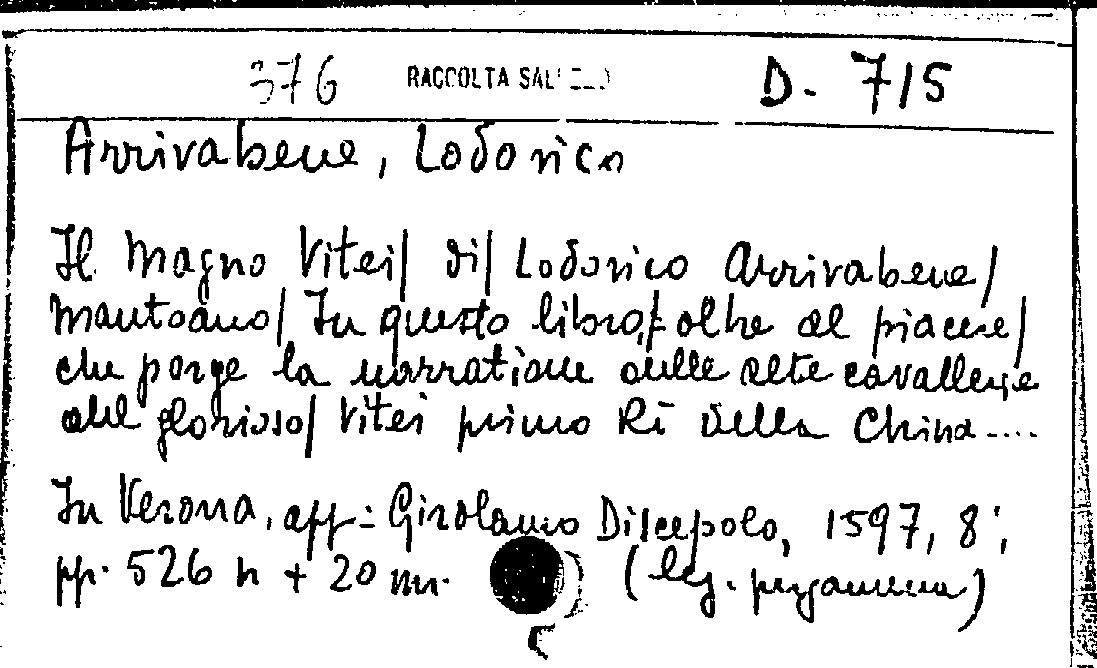 376 RACCOLTA D. 715
Arrivabene, Lodovico
Il Magno Vitei/ di/ Lodovico Arrivabene/
Mantoano/ In questo libro,/ oltre al piacere/
che porge la narratione delle alte cavallerie
del glorioso/ Vitei primo Rè della China....
In Verona, app: Girolamo Discepolo, 1597, 8°;
pp. 526 n + 20 nn. (leg. pergamena)